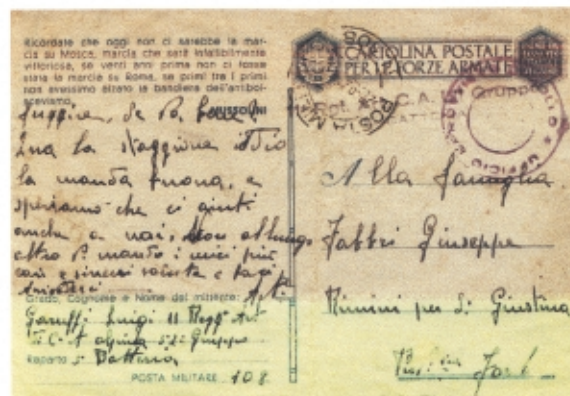 Ricordate che oggi non ci sarebbe la mar-
cia su Mosca, marcia che sarà infallibilmente
vittoriosa, se venti anni prima non ci fosse
stata la marcia su Roma, se primi tra i primi
non avessimo alzato la bandiera dell'antibol-
scevismo.
MUSSOLINI
la staggione Iddio
la manda buona, e
speriamo che ci aiuti
anche a noi, Non allungo
altro mando i miei più
cari e sinceri saluti e baci
Grado, Cognome e Nome del mittente:
Garuffi Luigi 11 Regg Art
Reparto 5 Batteria
POSTA MILITARE 108
CARTOLINA POSTALE
PER LE FORZE ARMATE
Rgt. C. A. Gruppo
POSTA MILITARE
UFFICIO
Alla famiglia
Fabbri Giuseppe
Rimini per S. Giustina
Forlì